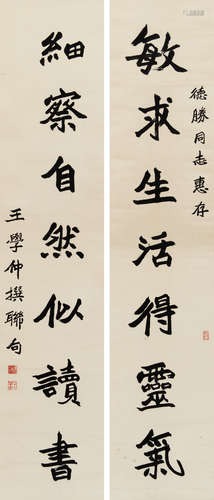 德勝同志惠存
敏求生活得靈氣
細察自然似讀書
王學仲撰聯句